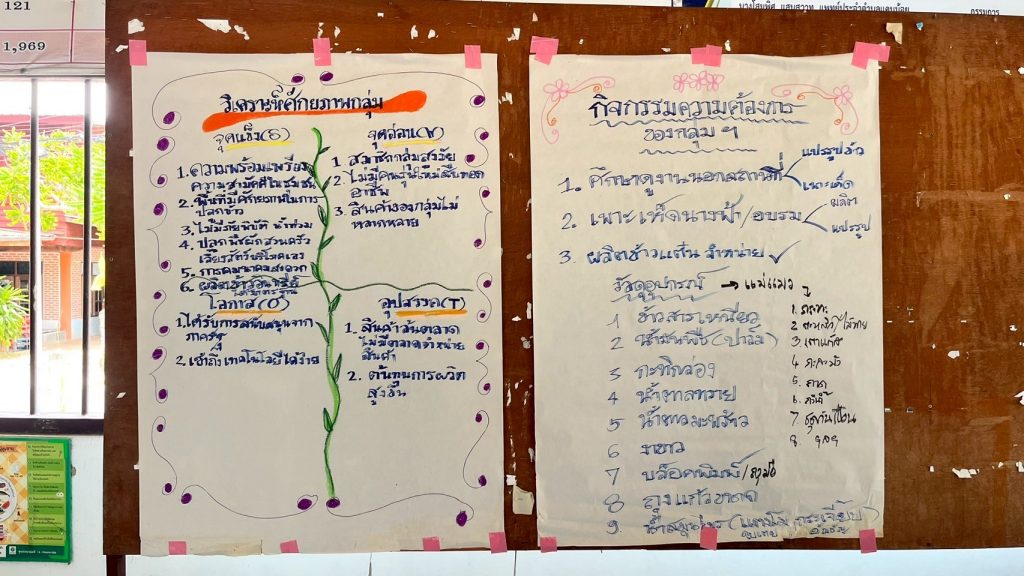 121
1,969
กรรมการ
วิเคราะห์ศักยภาพกลุ่ม
จุดแข็ง(S)
1. ความพร้อมเพรียง
ความสามัคคีในชุมชน
2. พื้นที่มีศักยภาพในการ
ปลูกข้าว
3. ไม่มีภัยพิบัติ น้ำท่วม
4. ปลูกพืชผักสวนครัว
เลี้ยงสัตว์บริโภคเอง
5. การคมนาคมสะดวก
6. ผลิตข้าวอินทรีย์
จุดอ่อน(W)
1. สมาชิกกลุ่มสูงวัย
2. ไม่มีคนรุ่นใหม่สืบทอด
อาชีพ
3. สินค้าของกลุ่มไม่
หลากหลาย
โอกาส(O)
1.ได้รับการสนับสนุนจาก
ภาครัฐ
2.เข้าถึงเทคโนโลยีได้ง่าย
อุปสรรค(T)
1. สินค้าล้นตลาด
ไม่มีตลาดจำหน่าย
สินค้า
2. ต้นทุนการผลิต
สูงขึ้น
กิจกรรมความต้องการ
ของกลุ่ม ฯ
1. ศึกษาดูงานนอกสถานที่
แปรรูปข้าว
เพาะเห็ด
2. เพาะเห็ดนางฟ้า/อบรม
ผลิต
แปรรูป
3. ผลิตข้าวแต๋น จำหน่าย ✓
วัสดุอุปกรณ์ → แม่แมว
1 ข้าวสารเหนียว
2 น้ำมันพืช (ปาล์ม)
3 กะทิกล่อง
4 น้ำตาลทราย
5 น้ำตาลมะพร้าว
6 งาขาว
7 บล็อคพิมพ์/
8 ถุงแก้ว
9 น้ำสมุนไพร (แตงโม กระเจี๊ยบ)
อัญชัน
1. กระทะ
3. เตาแก๊ส
4. กะละมัง
5. ถาด